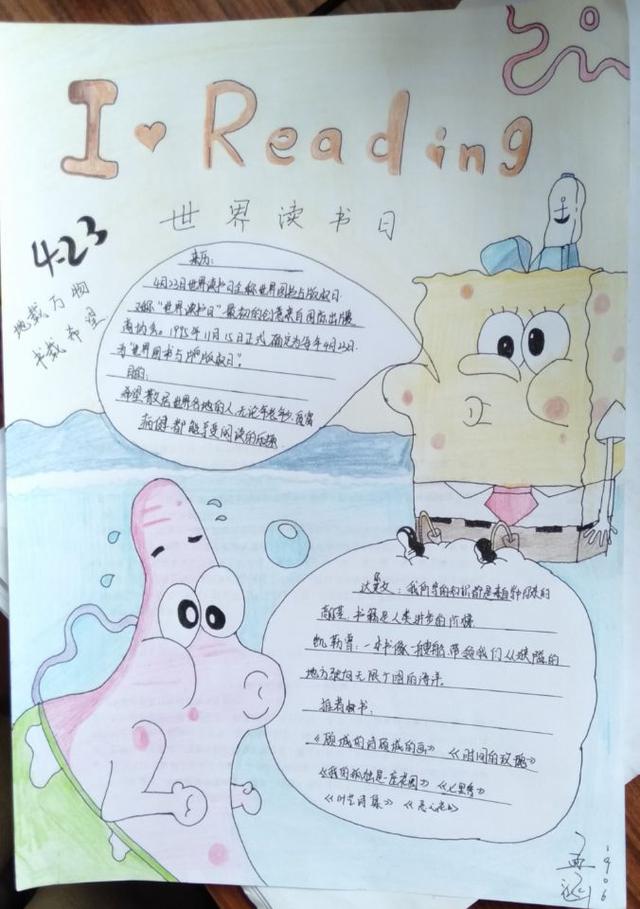 I Reading
世界读书日
4.23
地载万物
书载希望
来历:
4月23日世界读书日全称世界图书与版权日
又称"世界读书日"最初的创意来自国际出版
商协会。1995年11月15日正式确定为每年4月23日
为"世界图书与版权日"。
目的:
希望散居世界各地的人,无论年老年少,贫富
都能享受阅读的乐趣
达尔文:我所学的知识都是来自
书籍是人类进步的阶梯
凯勒曾:一本书像一艘船,带领我们从狭隘的
地方驶向无限广阔的海洋。
推荐好书:
《顾城的诗顾城的画》《时间的玫瑰》
《我的孤独是一座花园》《七里香》
《叶芝诗集》《恶之花》
1906